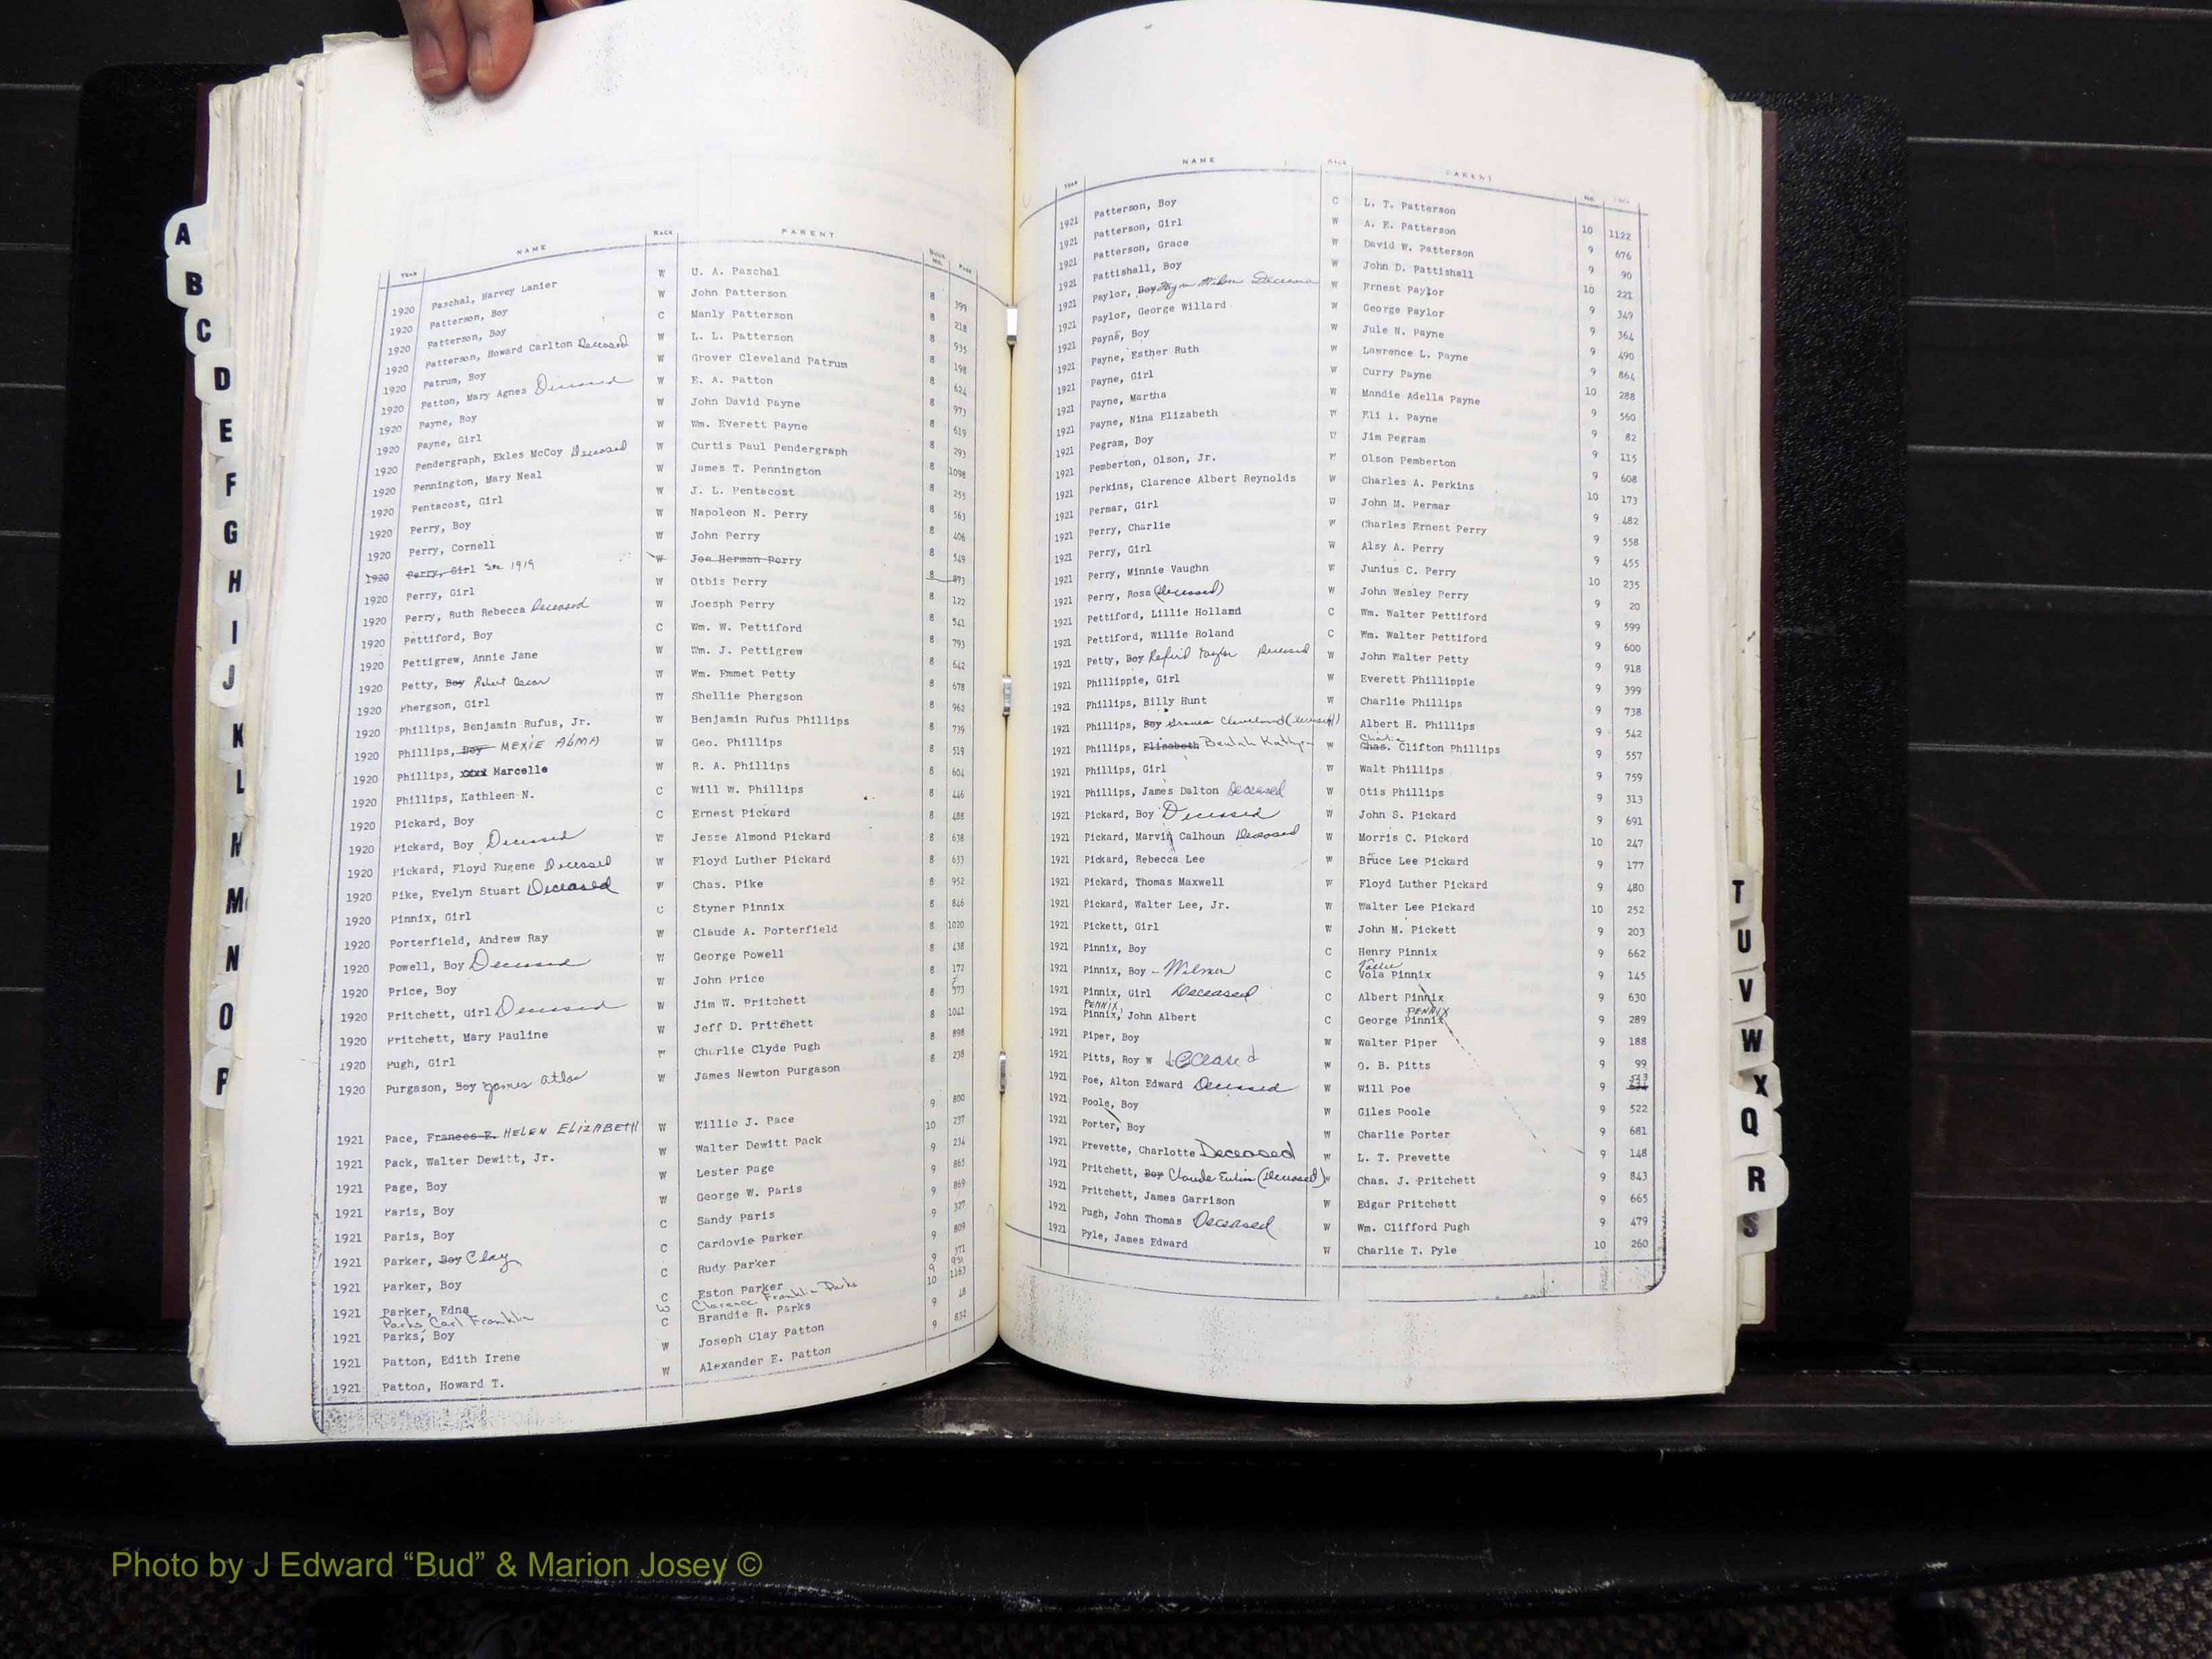 A
B
C
D
E
F
G
H
I
J
K
L
N
M
N
O
P
YEAR NAME RACE PARENT BOOK NO. PAGE
1920 Paschal, Harvey Lanier W U. A. Paschal 8 399
1920 Patterson, Boy W John Patterson 8 218
1920 Patterson, Boy C Manly Patterson 8 935
1920 Patterson, Howard Carlton Deceased W L. L. Patterson 8 198
1920 Patrum, Boy W Grover Cleveland Patrum 8 624
1920 Patton, Mary Agnes Deceased W E. A. Patton 8 973
1920 Payne, Boy W John David Payne 8 619
1920 Payne, Girl W Wm. Everett Payne 8 293
1920 Pendergraph, Ekles McCoy Deceased W Curtis Paul Pendergraph 8 1098
1920 Pennington, Mary Neal W James T. Pennington 8 255
1920 Pentacost, Girl W J. L. Pentacost 8 563
1920 Perry, Boy W Napoleon N. Perry 8 406
1920 Perry, Cornell W John Perry 8 549
1920 Perry, Girl See 1919 W Joe Herman Perry 8 873
1920 Perry, Girl W Otbis Perry 8 122
1920 Perry, Ruth Rebecca Deceased W Joesph Perry 8 541
1920 Pettiford, Boy C Wm. W. Pettiford 8 793
1920 Pettigrew, Annie Jane W Wm. J. Pettigrew 8 642
1920 Petty, Boy Robert Oscar W Wm. Emmet Petty 8 678
1920 Phergson, Girl W Shellie Phergson 8 962
1920 Phillips, Benjamin Rufus, Jr. W Benjamin Rufus Phillips 8 739
1920 Phillips, Boy MEXIE ALMA W Geo. Phillips 8 519
1920 Phillips, xxxx Marcelle W R. A. Phillips 8 604
1920 Phillips, Kathleen N. C Will W. Phillips 8 446
1920 Pickard, Boy C Ernest Pickard 8 488
1920 Pickard, Boy Deceased W Jesse Almond Pickard 8 638
1920 Pickard, Floyd Eugene Deceased W Floyd Luther Pickard 8 633
1920 Pike, Evelyn Stuart Deceased W Chas. Pike 8 952
1920 Pinnix, Girl C Styner Pinnix 8 846
1920 Porterfield, Andrew Ray W Claude A. Porterfield 8 1020
1920 Powell, Boy Deceased W George Powell 8 438
1920 Price, Boy W John Price 8 172
1920 Pritchett, Girl Deceased W Jim W. Pritchett 8 573
1920 Pritchett, Mary Pauline W Jeff D. Pritchett 8 1041
1920 Pugh, Girl W Charlie Clyde Pugh 8 898
1920 Purgason, Boy James Atlas W James Newton Purgason 8 238
1921 Pace, Frances E. HELEN ELIZABETH W Willie J. Pace 9 800
1921 Pack, Walter Dewitt, Jr. W Walter Dewitt Pack 10 237
1921 Page, Boy W Lester Page 9 234
1921 Paris, Boy W George W. Paris 9 865
1921 Paris, Boy C Sandy Paris 9 869
1921 Parker, Boy Clay C Cardovie Parker 9 327
1921 Parker, Boy C Rudy Parker 9 809
1921 Parker, Edna C Eston Parker 9 571
Parks, Carl Franklin W Clarence Franklin Parks 9 951
1921 Parks, Boy C Brandie R. Parks 10 1163
1921 Patton, Edith Irene W Joseph Clay Patton 9 48
1921 Patton, Howard T. W Alexander E. Patton 9 832
YEAR NAME RACE PARENT NO. PAGE
1921 Patterson, Boy C L. T. Patterson 10 1122
1921 Patterson, Girl W A. E. Patterson 9 676
1921 Patterson, Grace W David W. Patterson 9 90
1921 Pattishall, Boy W John D. Pattishall 10 221
1921 Paylor, Boy Deceased W Ernest Paylor 9 349
1921 Paylor, George Willard W George Paylor 9 364
1921 Payne, Boy W Jule N. Payne 9 490
1921 Payne, Esther Ruth W Lawrence L. Payne 9 864
1921 Payne, Girl W Curry Payne 10 288
1921 Payne, Martha W Mandie Adella Payne 9 560
1921 Payne, Nina Elizabeth W Eli I. Payne 9 82
1921 Pegram, Boy W Jim Pegram 9 115
1921 Pemberton, Olson, Jr. W Olson Pemberton 9 608
1921 Perkins, Clarence Albert Reynolds W Charles A. Perkins 10 173
1921 Permar, Girl W John M. Permar 9 482
1921 Perry, Charlie W Charles Ernest Perry 9 558
1921 Perry, Girl W Alsy A. Perry 9 455
1921 Perry, Minnie Vaughn W Junius C. Perry 10 235
1921 Perry, Rosa (Deceased) W John Wesley Perry 9 20
1921 Pettiford, Lillie Holland C Wm. Walter Pettiford 9 599
1921 Pettiford, Willie Roland C Wm. Walter Pettiford 9 600
1921 Petty, Boy Taylor Deceased W John Walter Petty 9 918
1921 Phillippie, Girl W Everett Phillippie 9 399
1921 Phillips, Billy Hunt W Charlie Phillips 9 738
1921 Phillips, Boy Cleveland (Deceased) W Albert H. Phillips 9 542
1921 Phillips, Elizabeth Beulah Kathryn W Charlie Chas. Clifton Phillips 9 557
1921 Phillips, Girl W Walt Phillips 9 759
1921 Phillips, James Dalton Deceased W Otis Phillips 9 313
1921 Pickard, Boy Deceased W John S. Pickard 9 691
1921 Pickard, Marvin Calhoun Deceased W Morris C. Pickard 10 247
1921 Pickard, Rebecca Lee W Bruce Lee Pickard 9 177
1921 Pickard, Thomas Maxwell W Floyd Luther Pickard 9 480
1921 Pickard, Walter Lee, Jr. W Walter Lee Pickard 10 252
1921 Pickett, Girl W John M. Pickett 9 203
1921 Pinnix, Boy C Henry Pinnix 9 662
1921 Pinnix, Boy - Wilmer C Vola Pinnix 9 145
1921 Pinnix, Girl Deceased C Albert Pinnix 9 630
1921 PENNIX Pinnix, John Albert C George Pinnix PENNIX 9 289
1921 Piper, Boy W Walter Piper 9 188
1921 Pitts, Roy W Deceased W O. B. Pitts 9 99
1921 Poe, Alton Edward Deceased W Will Poe 9
1921 Poole, Boy W Giles Poole 9 522
1921 Porter, Boy W Charlie Porter 9 681
1921 Prevette, Charlotte Deceased W L. T. Prevette 9 148
1921 Pritchett, Boy Claude (Deceased) W Chas. J. Pritchett 9 843
1921 Pritchett, James Garrison W Edgar Pritchett 9 665
1921 Pugh, John Thomas Deceased W Wm. Clifford Pugh 9 479
1921 Pyle, James Edward W Charlie T. Pyle 10 260
T
U
V
W
X
Q
R
S
Photo by J Edward “Bud” & Marion Josey ©